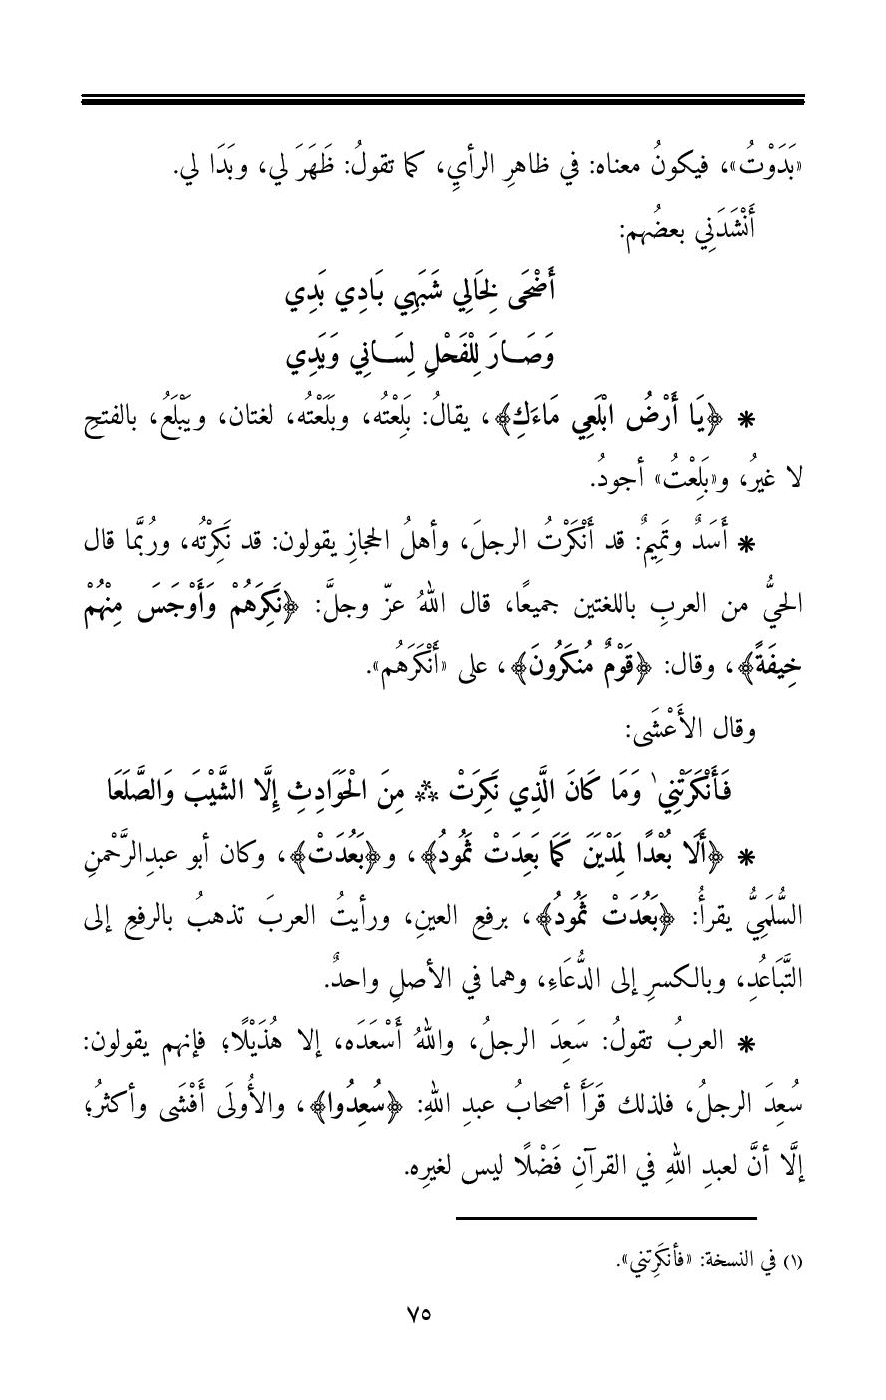 «بَدَوْتُ»، فيكونُ معناه: في ظاهرِ الرأيِ، كما تقولُ: ظَهَرَ لي، وبَدَا لي.
أَنْشَدَنِي بعضُهم:
أَضْحَى لِخَالِي شَبَهِي بَادِي بَدِي
وَصَـــارَ لِلْفَحْلِ لِسَـــانِي وَيَدِي
* ﴿يَا أَرْضُ ابْلَعِي مَاءَكِ﴾، يقالُ: بَلِعْتُه، وبَلَعْتُه، لغتان، ويَبْلَعُ، بالفتحِ
لا غيرُ، و«بَلِعْتُ» أجودُ.
* أَسَدٌ وتَمِيمٌ: قد أَنْكَرْتُ الرجلَ، وأهلُ الحجازِ يقولون: قد نَكِرْتُه، ورُبَّما قال
الحيُّ من العربِ باللغتين جميعًا، قال اللهُ عزّ وجلَّ: ﴿نَكِرَهُمْ وَأَوْجَسَ مِنْهُمْ
خِيفَةً﴾، وقال: ﴿قَوْمٌ مُنكَرُونَ﴾، على «أَنْكَرَهُم».
وقال الأَعْشَى:
فَأَنْكَرَتْنِي ١ وَمَا كَانَ الَّذِي نَكِرَتْ ** مِنَ الْحَوَادِثِ إِلَّا الشَّيْبَ وَالصَّلَعَا
* ﴿أَلَا بُعْدًا لِمَدْيَنَ كَمَا بَعِدَتْ ثَمُودُ﴾، و﴿بَعُدَتْ﴾، وكان أبو عبدِالرَّحْمنِ
السُّلَمِيُّ يقرأُ: ﴿بَعُدَتْ ثَمُودُ﴾، برفعِ العينِ، ورأيتُ العربَ تذهبُ بالرفعِ إلى
التَّبَاعُدِ، وبالكسرِ إلى الدُّعَاءِ، وهما في الأصلِ واحدٌ.
* العربُ تقولُ: سَعِدَ الرجلُ، واللهُ أَسْعَدَه، إلا هُذَيْلًا؛ فإنهم يقولون:
سُعِدَ الرجلُ، فلذلك قَرَأَ أصحابُ عبدِ اللهِ: ﴿سُعِدُوا﴾، والأُولَى أَفْشَى وأكثرُ؛
إلَّا أنَّ لعبدِ اللهِ في القرآنِ فَضْلًا ليس لغيرِه.
(١) في النسخة: «فأنكَرِتني».
٧٥